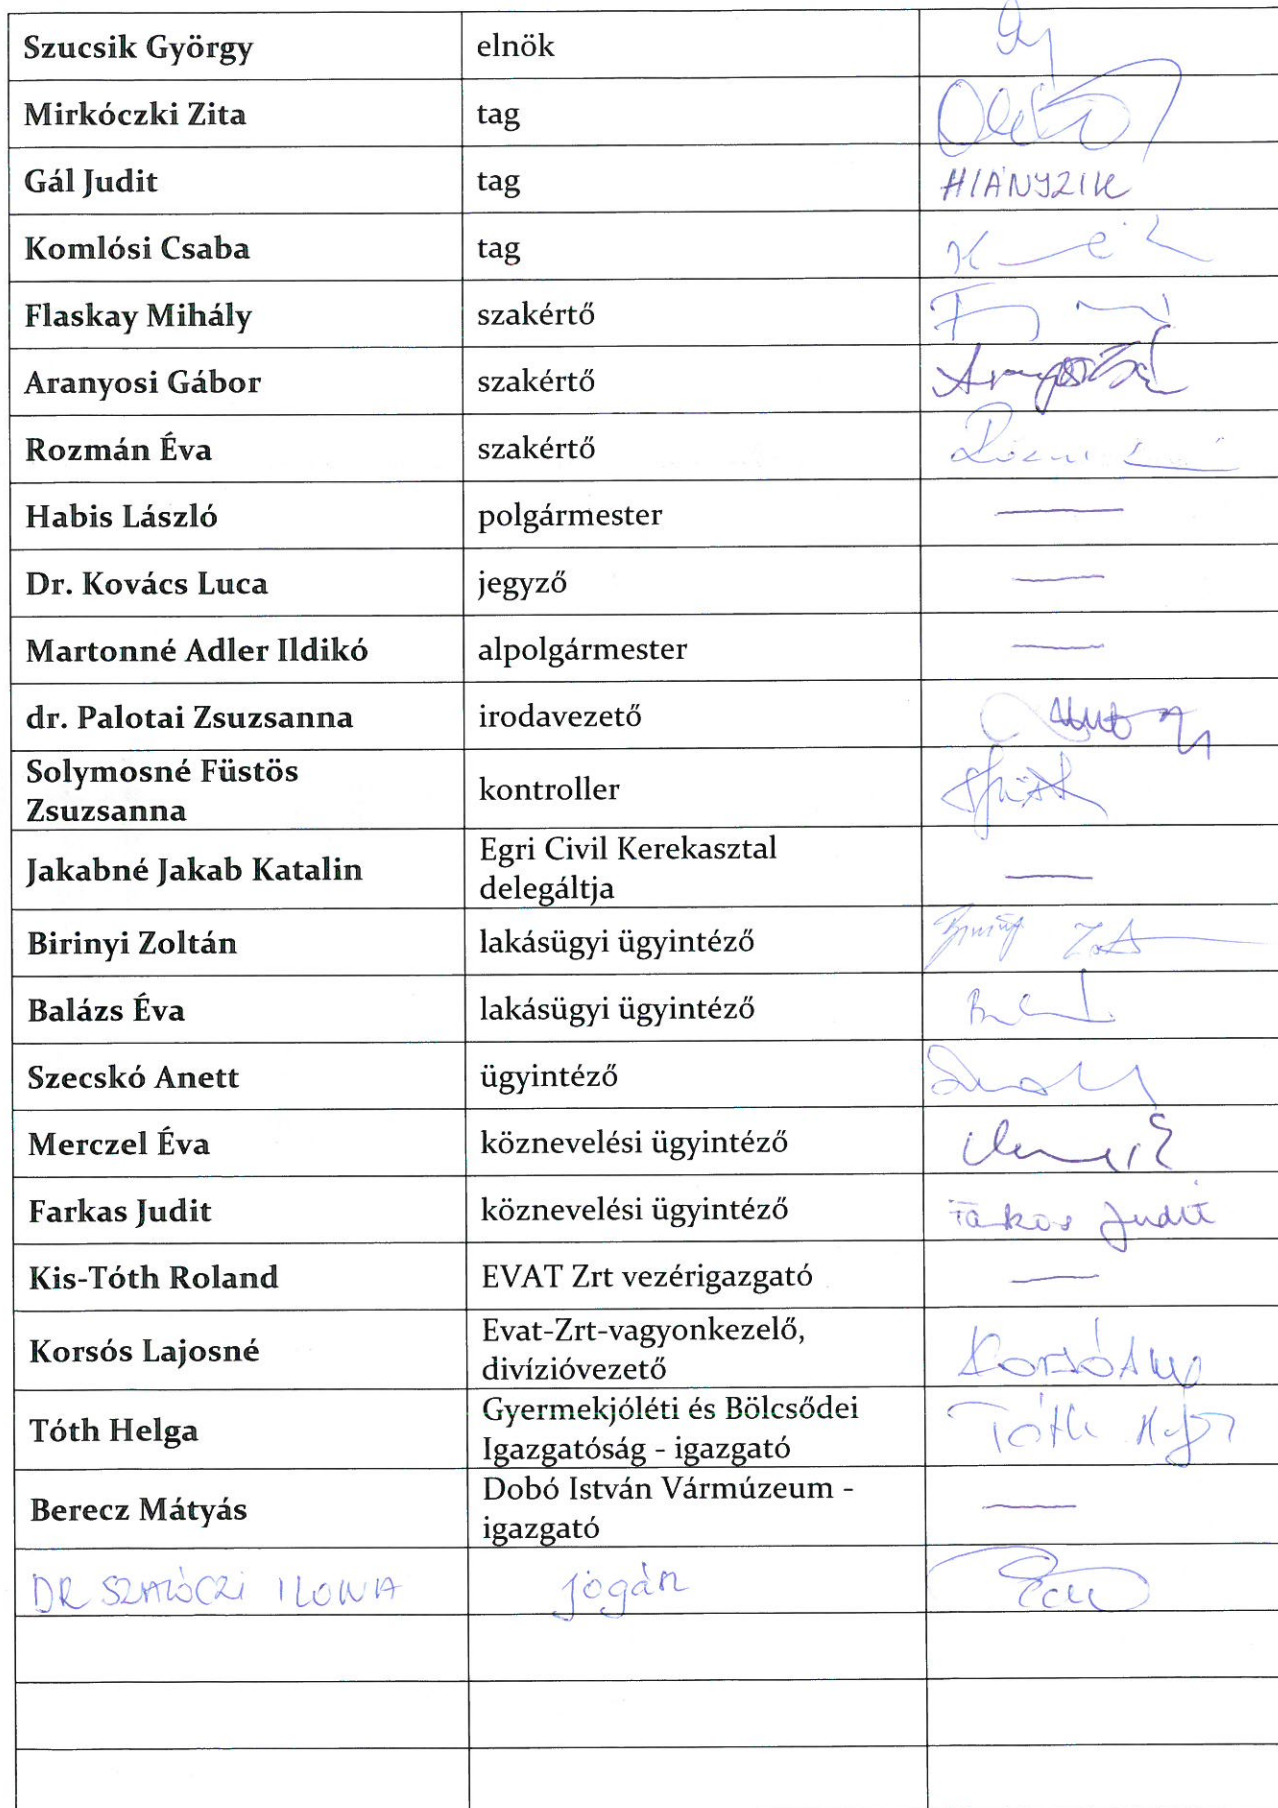 Szucsik György elnök
Mirkóczki Zita tag
Gál Judit tag HIÁNYZIK
Komlósi Csaba tag
Flaskay Mihály szakértő
Aranyosi Gábor szakértő
Rozmán Éva szakértő
Habis László polgármester —
Dr. Kovács Luca jegyző —
Martonné Adler Ildikó alpolgármester —
dr. Palotai Zsuzsanna irodavezető
Solymosné Füstös
Zsuzsanna kontroller
Jakabné Jakab Katalin Egri Civil Kerekasztal
delegáltja —
Birinyi Zoltán lakásügyi ügyintéző
Balázs Éva lakásügyi ügyintéző
Szecskó Anett ügyintéző
Merczel Éva köznevelési ügyintéző
Farkas Judit köznevelési ügyintéző Farkas Judit
Kis-Tóth Roland EVAT Zrt vezérigazgató —
Korsós Lajosné Evat-Zrt-vagyonkezelő,
divízióvezető
Tóth Helga Gyermekjóléti és Bölcsődei
Igazgatóság - igazgató Tóth Helga
Berecz Mátyás Dobó István Vármúzeum -
igazgató —
DR SZALÓCZI ILONA